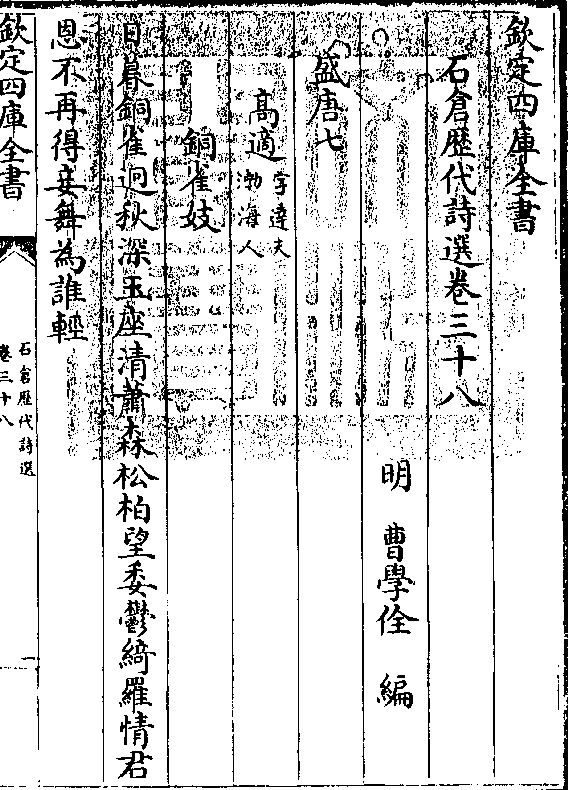 欽定四庫全書
石倉歴代詩選卷三十八
明　曹學佺　編
盛唐七
高適字達夫
渤海人
銅雀妓
日暮銅雀迥秋深玉座清蕭森松柏望委鬱綺羅情君
恩不再得妾舞為誰輕
欽定四庫全書
石倉歷代詩選
卷三十八
一